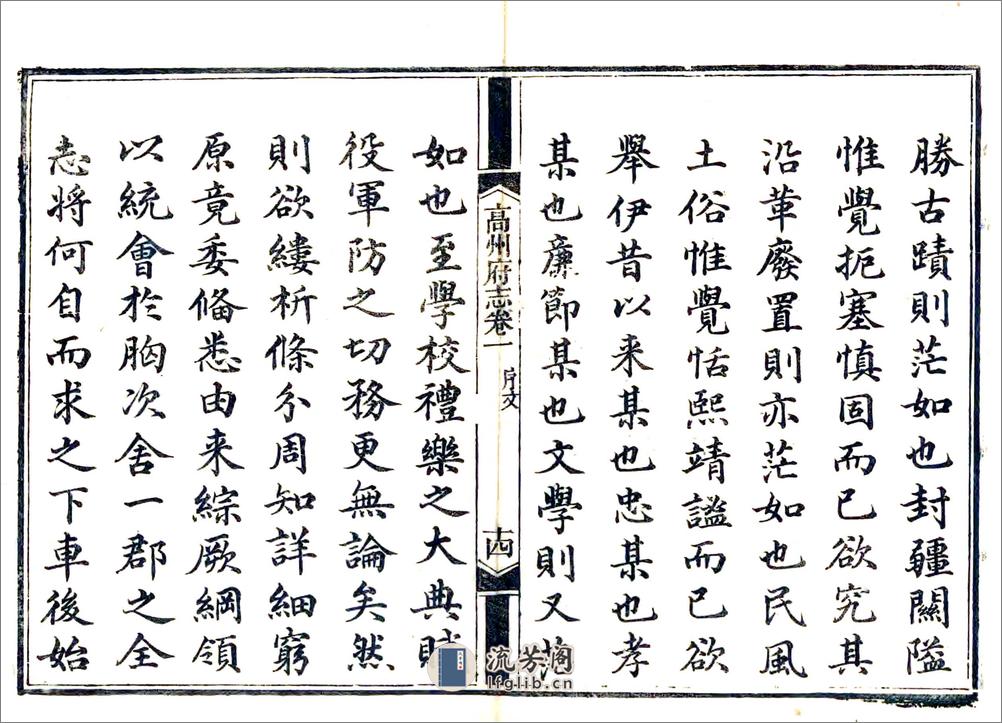 勝古蹟則茫如也封疆關隘
惟覺扼塞慎固而已欲究其
沿革廢置則亦茫如也民風
土俗惟覺恬熙靖謐而已欲
舉伊昔以来某也忠某也孝
某也廉節某也文學則又茫
高州府志卷一 序文 十四
如也至學校禮樂之大典賦
役軍防之切務更無論矣然
則欲縷析條分周知詳細窮
原竟委備悉由来綜厥綱領
以統會於胸次舍一郡之全
志將何自而求之下車後始
流芳閣
lfglib.cn